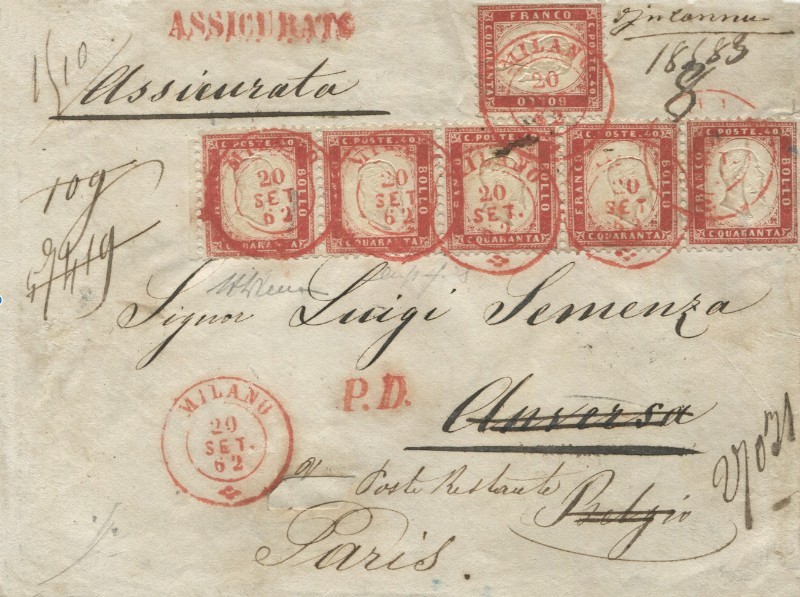 ASSICURATO
Assicurata
18683
8
FRANCO C. POSTE. 40 BOLLO C. QUARANTA
MILANO 20 SET. 62
C. POSTE. 40 BOLLO C. QUARANTA
MILANO 20 SET. 62
C. POSTE. 40 BOLLO C. QUARANTA
20 SET. 62
C. POSTE. 40 BOLLO C. QUARANTA
MILANO 20 SET. 62
FRANCO C. POSTE. 40 BOLLO C. QUARANTA
20 SET
FRANCO C. POSTE. 40 BOLLO C. QUARANTA
109
Signor Luigi Semenza
P.D.
Anversa
MILANO
20
SET.
62
Poste Restante
Belgio
Paris.